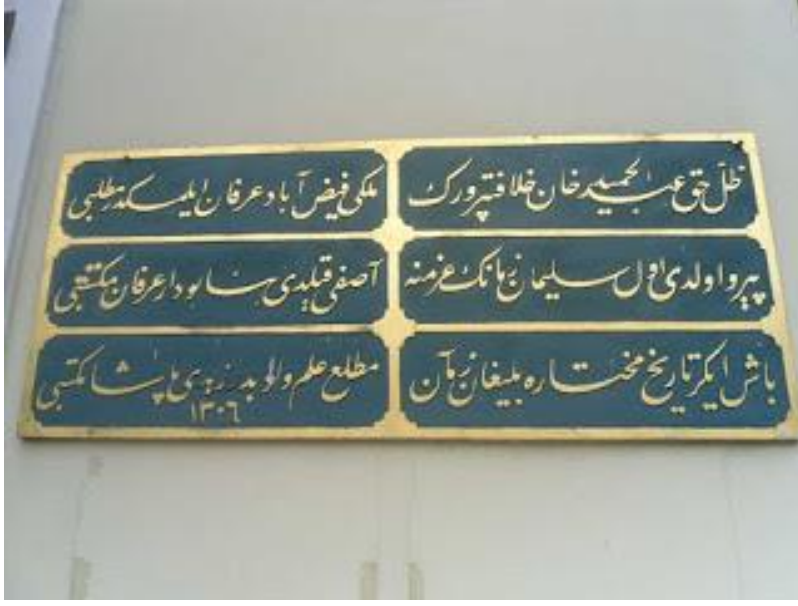 ظل حق عبدالحمید خان خلافتپرورك
ملكی فیض آباد عرفان ایلمكدر مطلبی
پیرو اولدی اول سلیمان زمانك عزمنه
آصفی قیلدی بنا بو دار عرفان مكتبی
باش اكر تاریخ مختاره بلیغان زمان
مطلع علم و پاشا مكتبی
١٣٠٦